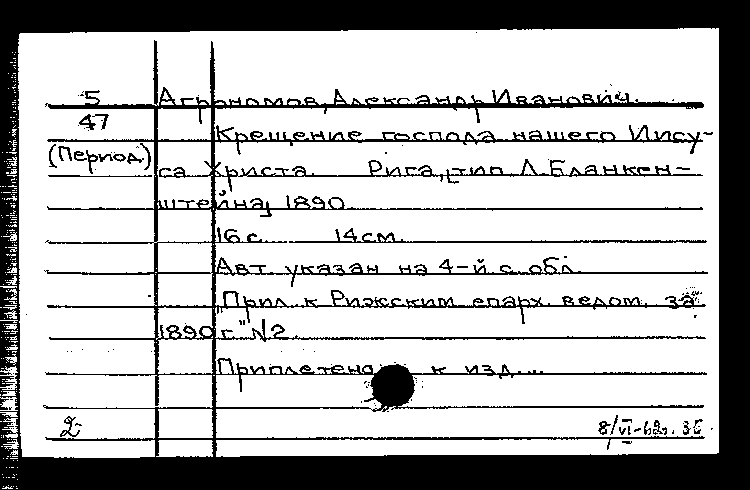 5 Агрономов, Александр Иванович.
47 Крещение господа нашего Иису-
(Период) са Христа. Рига, [тип. Л. Бланкен-
штейна] 1890.
16 с. 14 см.
Авт. указан на 4-й с. обл.
"Прил. к Рижским епарх. ведом. за
1890 г." N2
Приплетена к изд....
2 8/VI-62г.